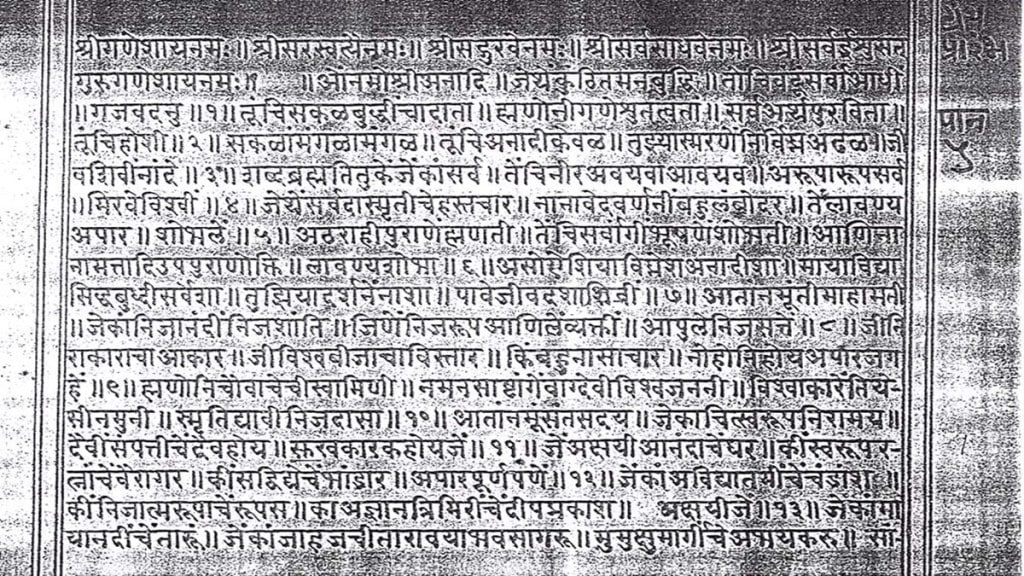 श्रीगणेशायनमः॥ श्रीसरस्वत्यैनमः॥ श्रीसद्गुरवेनमः॥ श्रीसर्वसाधवेनमः॥ श्रीसर्वईश्वरसन
गुरुगणेशायनमः॥ ॥ओंनमोश्रीअनादि॥ जेथेंकुंठितसनबुद्धि॥ तोचिवंदूसर्वांआधी
॥गजवदनु॥१॥ तूंचिसकळबुद्धीचादाता॥ ह्मणोनीगणेशुतत्वता॥ सर्वअर्थपुरविता॥
तूंचिहोशी॥२॥ सकळांमंगळामंगळ॥ तूंचिअनादीकेवळ॥ तुझ्यास्मरणेंनिर्विघ्नअढळ॥ जी
वशिवींनांदे॥३॥ शब्दब्रह्मतितुकेंजेकांसर्व॥ तेंचिनीरअवयवाआवयव॥ अरूपारूपसर्व
॥मिरवेविश्वीं॥४॥ जेथेंसर्वदास्मृतीचेहस्तचार॥ नानावेदवर्णनींबहुलंबोदर॥ तेंलावण्य
अपार॥ शोभलें॥५॥ अठराहीपुराणेंह्मणती॥ तेंचिसर्वांगीभूषणेंशोभती॥ आणिना
नामतादिउपपुराणोक्ति॥ लावण्यशोभा॥६॥ असोऐशियाविघ्नेशअनादीशा॥ मायाविद्या
सिद्धबुध्दीसर्वेशा॥ तुझियादर्शनेंनाशा॥ पावेजीवदशाशिवीं॥७॥ आतांनमूंतीमाहामती
॥जेकांनिजानंदींनिजशांति॥ जिणेंनिजरूपआणिलेंव्यक्तीं॥ आपुलेनिजसत्ते॥८॥ जीनि
राकाराचाआकार॥ जीविश्वबीजाचाविस्तार॥ किंबहुनासाचार॥ नोहोनिहोयअपारजग
हें॥९॥ ह्मणोनिचौवाचेचीस्वामिणी॥ नमनसाष्टांगेंवाग्देवीविश्वजननी॥ विश्वाकारेंतिये-
सीनमुनी॥ स्मृतिद्यावीनिजदासा॥१०॥ आतांनमूसंतसदय॥ जेकांचित्स्वरूपनिरामय॥
दैवीसंपत्तीचेंदैवहोय॥ सुखकारकहोयजें॥११॥ जेंअक्षयीआनंदाचेंघर॥ कींस्वरूपर-
त्नांचेंवैरागर॥ कींसद्विद्येचेंभांडार॥ अपारपूर्णपणें॥१२॥ जेंकांअविद्यातमीचेंचंडांश॥
कींनिजात्मरूपाचेंरूपस॥ कांअज्ञानतिमिरींचेंदीपप्रकाश॥ अक्षयीजें॥१३॥ जेंकांमा
यानदींचेंतारूं॥ जेंकांजाहजचीतारावयाभवसागरू॥ मुमुक्षुमार्गीचेअभयकरु॥ सा-
प्रारंभ
पान
५